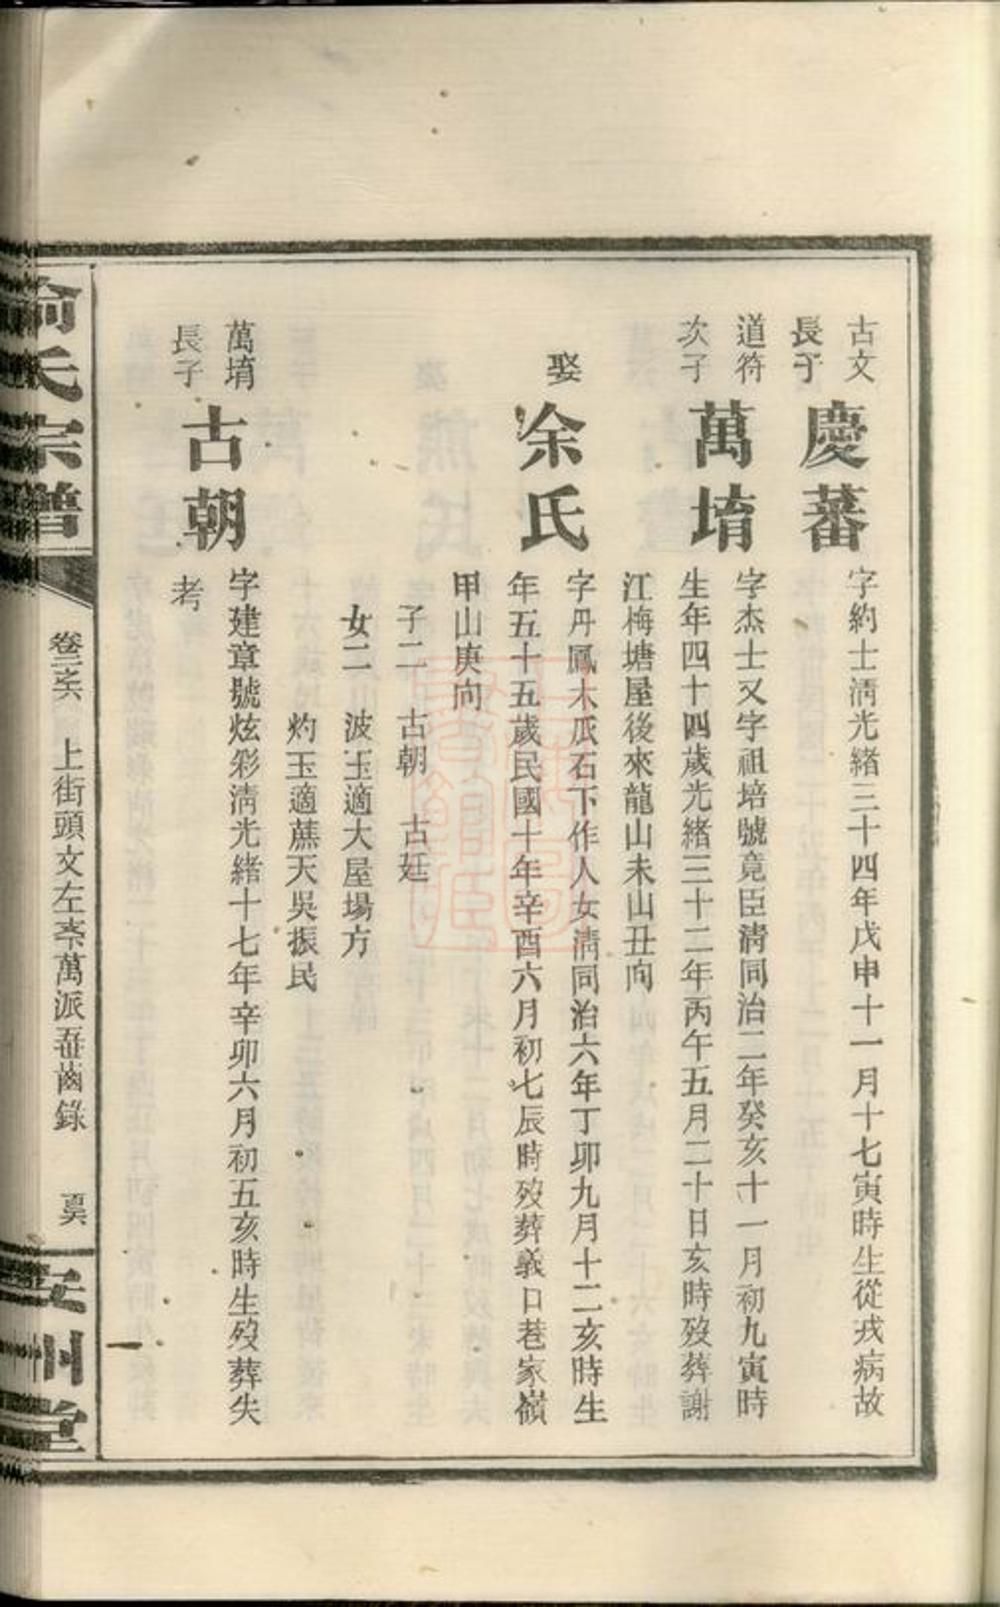 古文
長子
慶蕃
字約士清光緒三十四年戊申十一月十七寅時生從戎病故
道符
次子
萬堉
字杰士又字祖培號竟臣清同治二年癸亥十一月初九寅時
生年四十四歲光緒三十二年丙午五月二十日亥時歿葬謝
江梅塘屋後來龍山未山丑向
娶
余氏
字丹鳳木瓜石下作人女清同治六年丁卯九月十二亥時生
年五十五歲民國十年辛酉六月初七辰時歿葬義口巷家嶺
甲山庚向
子二 古朝 古廷
女二 波玉適大屋場方
灼玉適蕉天吳振民
萬堉
長子
古朝
字建章號炫彩清光緒十七年辛卯六月初五亥時生歿葬失
考
俞氏宗譜
上街頭文左 萬派 齒錄